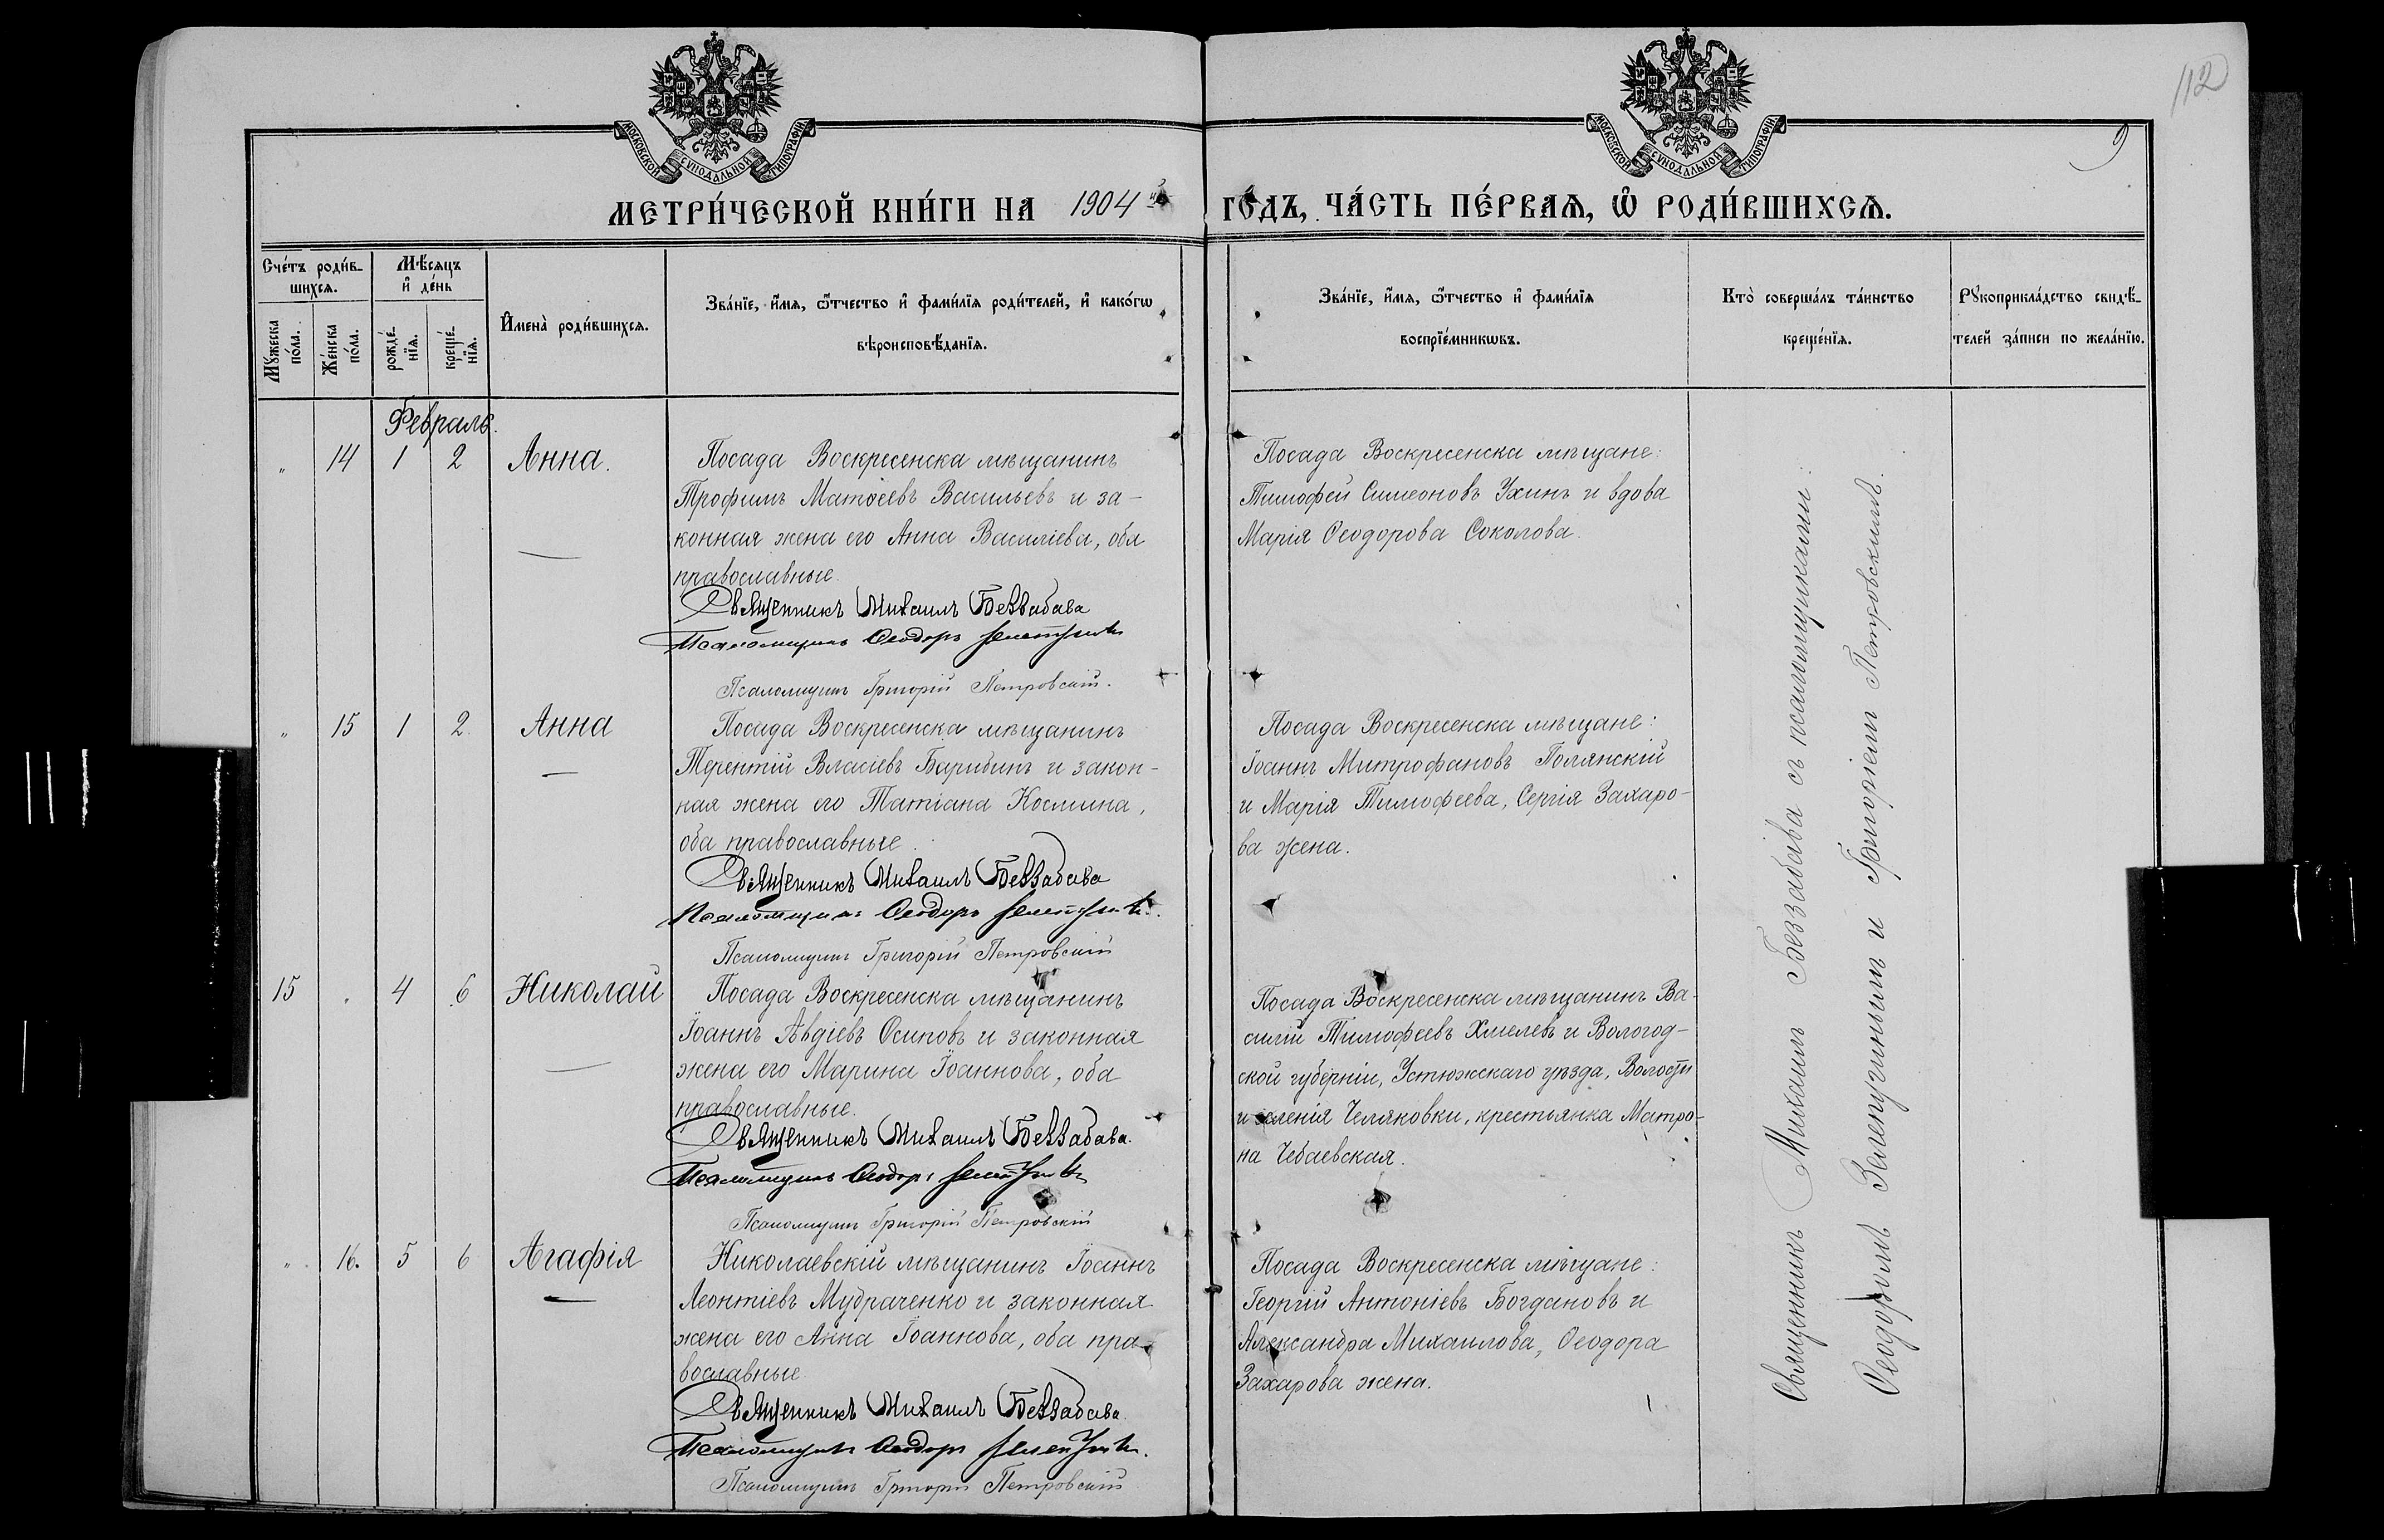 112
9
МОСКОВСКОЙ СѴНОДАЛЬНОЙ ТИПОГРАФІИ
МОСКОВСКОЙ СѴНОДАЛЬНОЙ ТИПОГРАФІИ
МЕТРИ́ЧЕСКОЙ КНИ́ГИ НА 1904й ГО́ДЪ, ЧА́СТЬ ПЕ́РВАѦ, Ѡ҆ РОДИ́ВШИХСѦ.
Сче́тъ роди́в-
шихсѧ.
Мꙋ́жеска по́ла.
Же́нска по́ла.
Мѣ́сѧцъ
и҆ де́нь
рожде́-
нїѧ.
креще́-
нїѧ.
И҆мена̀ роди́вшихсѧ.
Зва́нїе, и҆́мѧ, ѻ҆́тчество и҆ фами́лїѧ роди́телей, и҆ како́гѡ
вѣроисповѣ́данїѧ.
Зва́нїе, и҆́мѧ, ѻ҆́тчество и҆ фами́лїѧ
воспрїе́мникѡвъ.
Кто̀ соверша́лъ та́инство
креще́нїѧ.
Рꙋкоприкла́дство свидѣ́-
телей за́писи по жела́нїю.
Февраль.
„ 14 1 2 Анна.
Посада Воскресенска мѣщанинъ
Трофимъ Матѳеевъ Васильевъ и за-
конная жена его Анна Василіева, оба
православные.
Священникъ Михаилъ Беззабава
Псаломщикъ Ѳеодоръ
Псаломщикъ Григорій Петровскій.
Посада Воскресенска мѣщане:
Тимофей Симеоновъ Ухинъ и вдова
Марія Ѳеодорова Соколова.
„ 15 1 2 Анна
Посада Воскресенска мѣщанинъ
Терентій Власіевъ Барибинъ и закон-
ная жена его Татіана Космина,
оба православные.
Священникъ Михаилъ Беззабава
Псаломщикъ Ѳеодоръ
Псаломщикъ Григорій Петровскій
Посада Воскресенска мѣщане:
Іоаннъ Митрофановъ Полянскій
и Марія Тимофеева, Сергія Захаро-
ва жена.
15 „ 4 6 Николай
Посада Воскресенска мѣщанинъ
Іоаннъ Авдіевъ Осиповъ и законная
жена его Марина Іоаннова, оба
православные.
Священникъ Михаилъ Беззабава.
Псаломщикъ Ѳеодоръ
Псаломщикъ Григорій Петровскій
Посада Воскресенска мѣщанинъ Ва-
силій Тимофеевъ Хмелевъ и Вологод-
ской губерніи, Устюжскаго уѣзда, Волости
и селенія Челяковки, крестьянка Матро-
на Чебаевская.
„ 16. 5 6 Агафія
Николаевскій мѣщанинъ Іоаннъ
Леонтіевъ Мудраченко и законная
жена его Анна Іоаннова, оба пра-
вославные
Священникъ Михаилъ Беззабава.
Псаломщикъ Ѳеодоръ
Псаломщикъ Григорій Петровскій
Посада Воскресенска мѣщане:
Георгій Антоніевъ Богдановъ и
Александра Михаилова, Ѳеодора
Захарова жена.
Священникъ Михаилъ Беззабава съ псаломщиками:
Ѳеодоромъ Зелепугинымъ и Григоріемъ Петровскимъ.